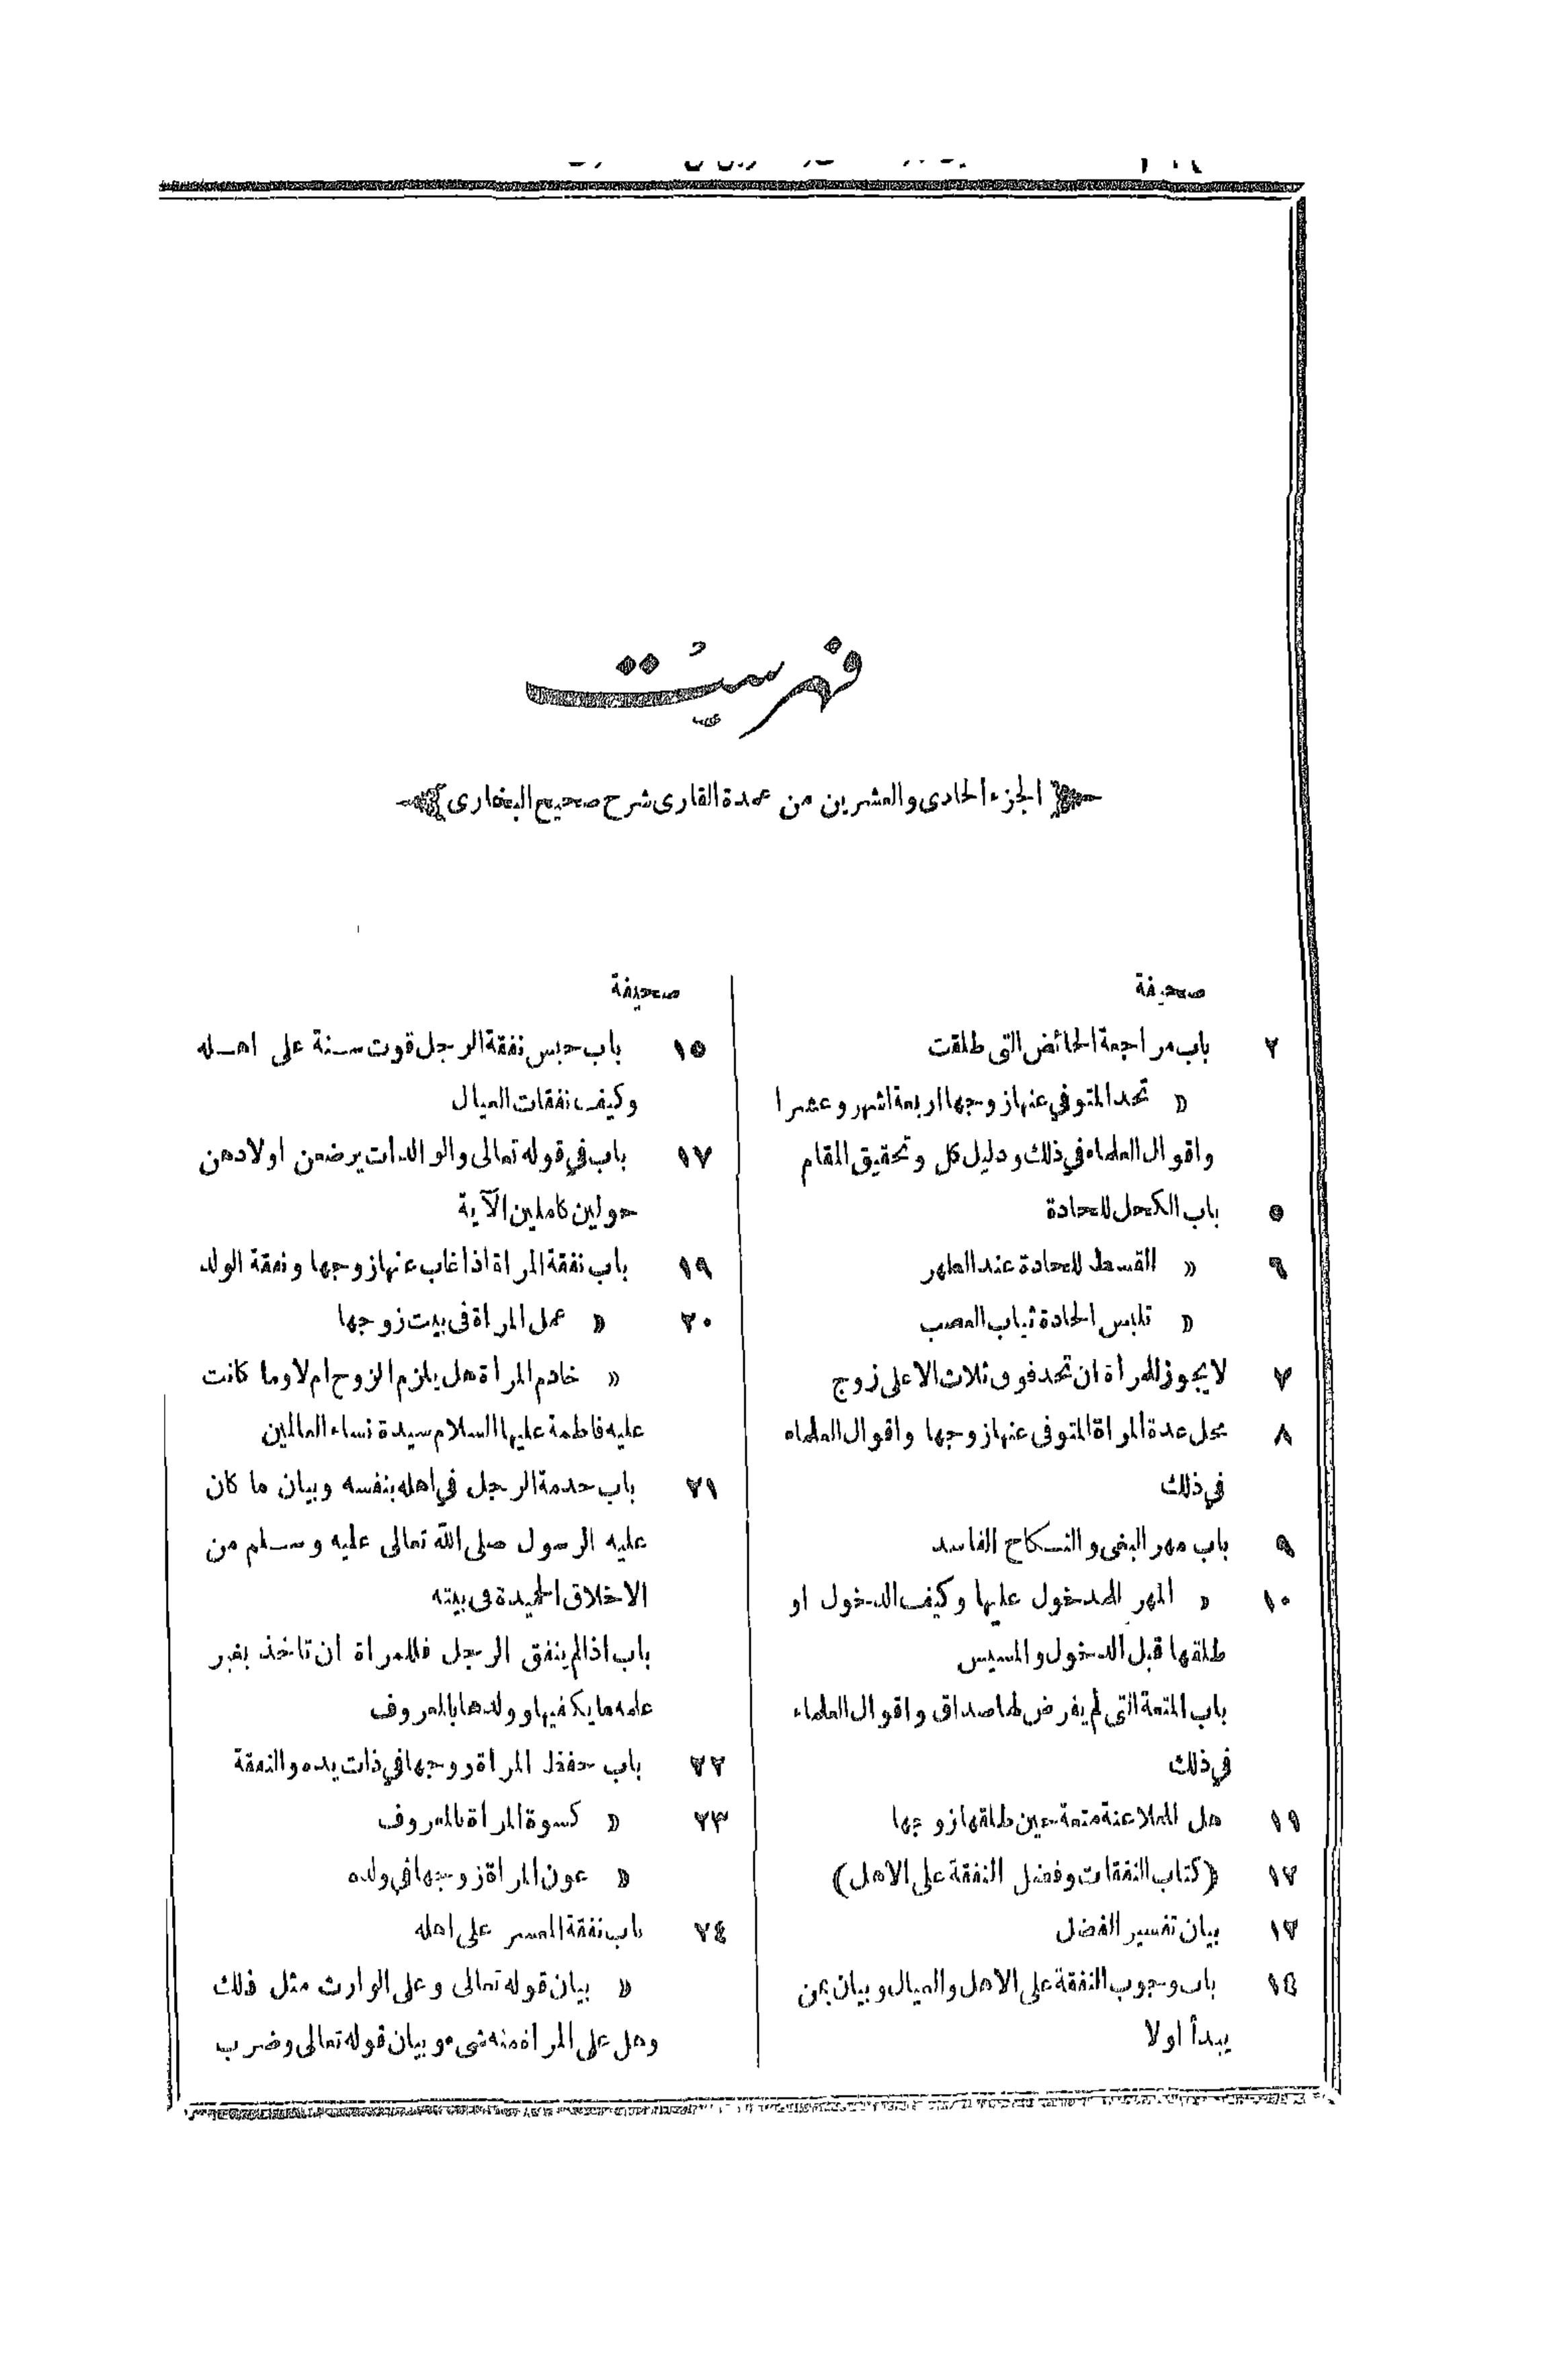 فهرست
الجزء الحادى والعشرين من عمدة القارى شرح صحيح البخارى
صحيفة
٢ باب مراجعة الحائض التى طلقت
« تحد المتوفي عنها زوجها اربعة اشهر وعشرا
واقوال العلماء في ذلك ودليل كل وتحقيق المقام
٥ باب الكحل للحادة
٦ « القسط للحادة عند الطهر
« تلبس الحادة ثياب العصب
٧ لا يجوز للمرأة ان تحد فوق ثلاث الا على زوج
٨ محل عدة المراة المتوفى عنها زوجها واقوال العلماء
في ذلك
٩ باب مهر البغى والنكاح الفاسد
١٠ « المهر للمدخول عليها وكيف الدخول او
طلقها قبل الدخول والمسيس
باب المتعة التى لم يفرض لها صداق واقوال العلماء
في ذلك
١١ هل للملاعنة متعة حين طلقها زوجها
١٢ (كتاب النفقات وفضل النفقة على الاهل)
١٢ بيان تفسير الفضل
١٤ باب وجوب النفقة على الاهل والعيال وبيان بمن
يبدأ اولا
صحيفة
١٥ باب حبس نفقة الرجل قوت سنة على اهله
وكيف نفقات العيال
١٧ باب في قوله تعالى والوالدات يرضعن اولادهن
حولين كاملين الآية
١٩ باب نفقة المراة اذا غاب عنها زوجها ونفقة الولد
٢٠ « عمل المراة فى بيت زوجها
« خادم المراة هل يلزم الزوج ام لا وما كانت
عليه فاطمة عليها السلام سيدة نساء العالمين
٢١ باب خدمة الرجل في اهله بنفسه وبيان ما كان
عليه الرسول صلى الله تعالى عليه وسلم من
الاخلاق الحميدة فى بيته
باب اذا لم ينفق الرجل فللمراة ان تاخذ بغير
علمه ما يكفيها وولدها بالمعروف
٢٢ باب حفظ المراة زوجها في ذات يده والنفقة
٢٣ « كسوة المراة بالمعروف
« عون المراة زوجها في ولده
٢٤ باب نفقة المعسر على اهله
« بيان قوله تعالى وعلى الوارث مثل ذلك
وهل على المراة منه شىء وبيان قوله تعالى وضرب